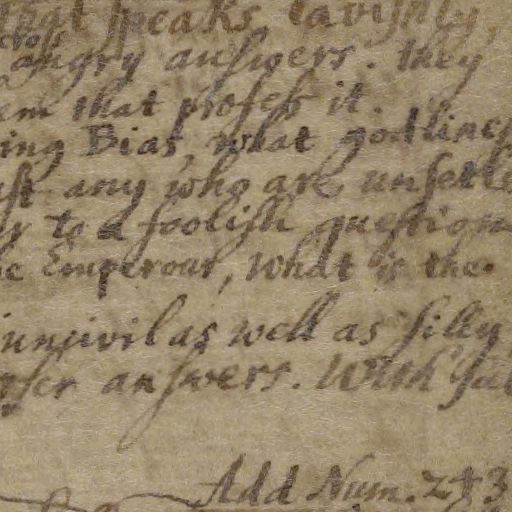 that speaks lavishly,
cross
angry answers. they
em that profess it.
ing Bias, what godlines
ust any who are unsetle
er to a foolish question
e Emperour, what is the
uncivil as well as silly
answers. With
Add Num. 243